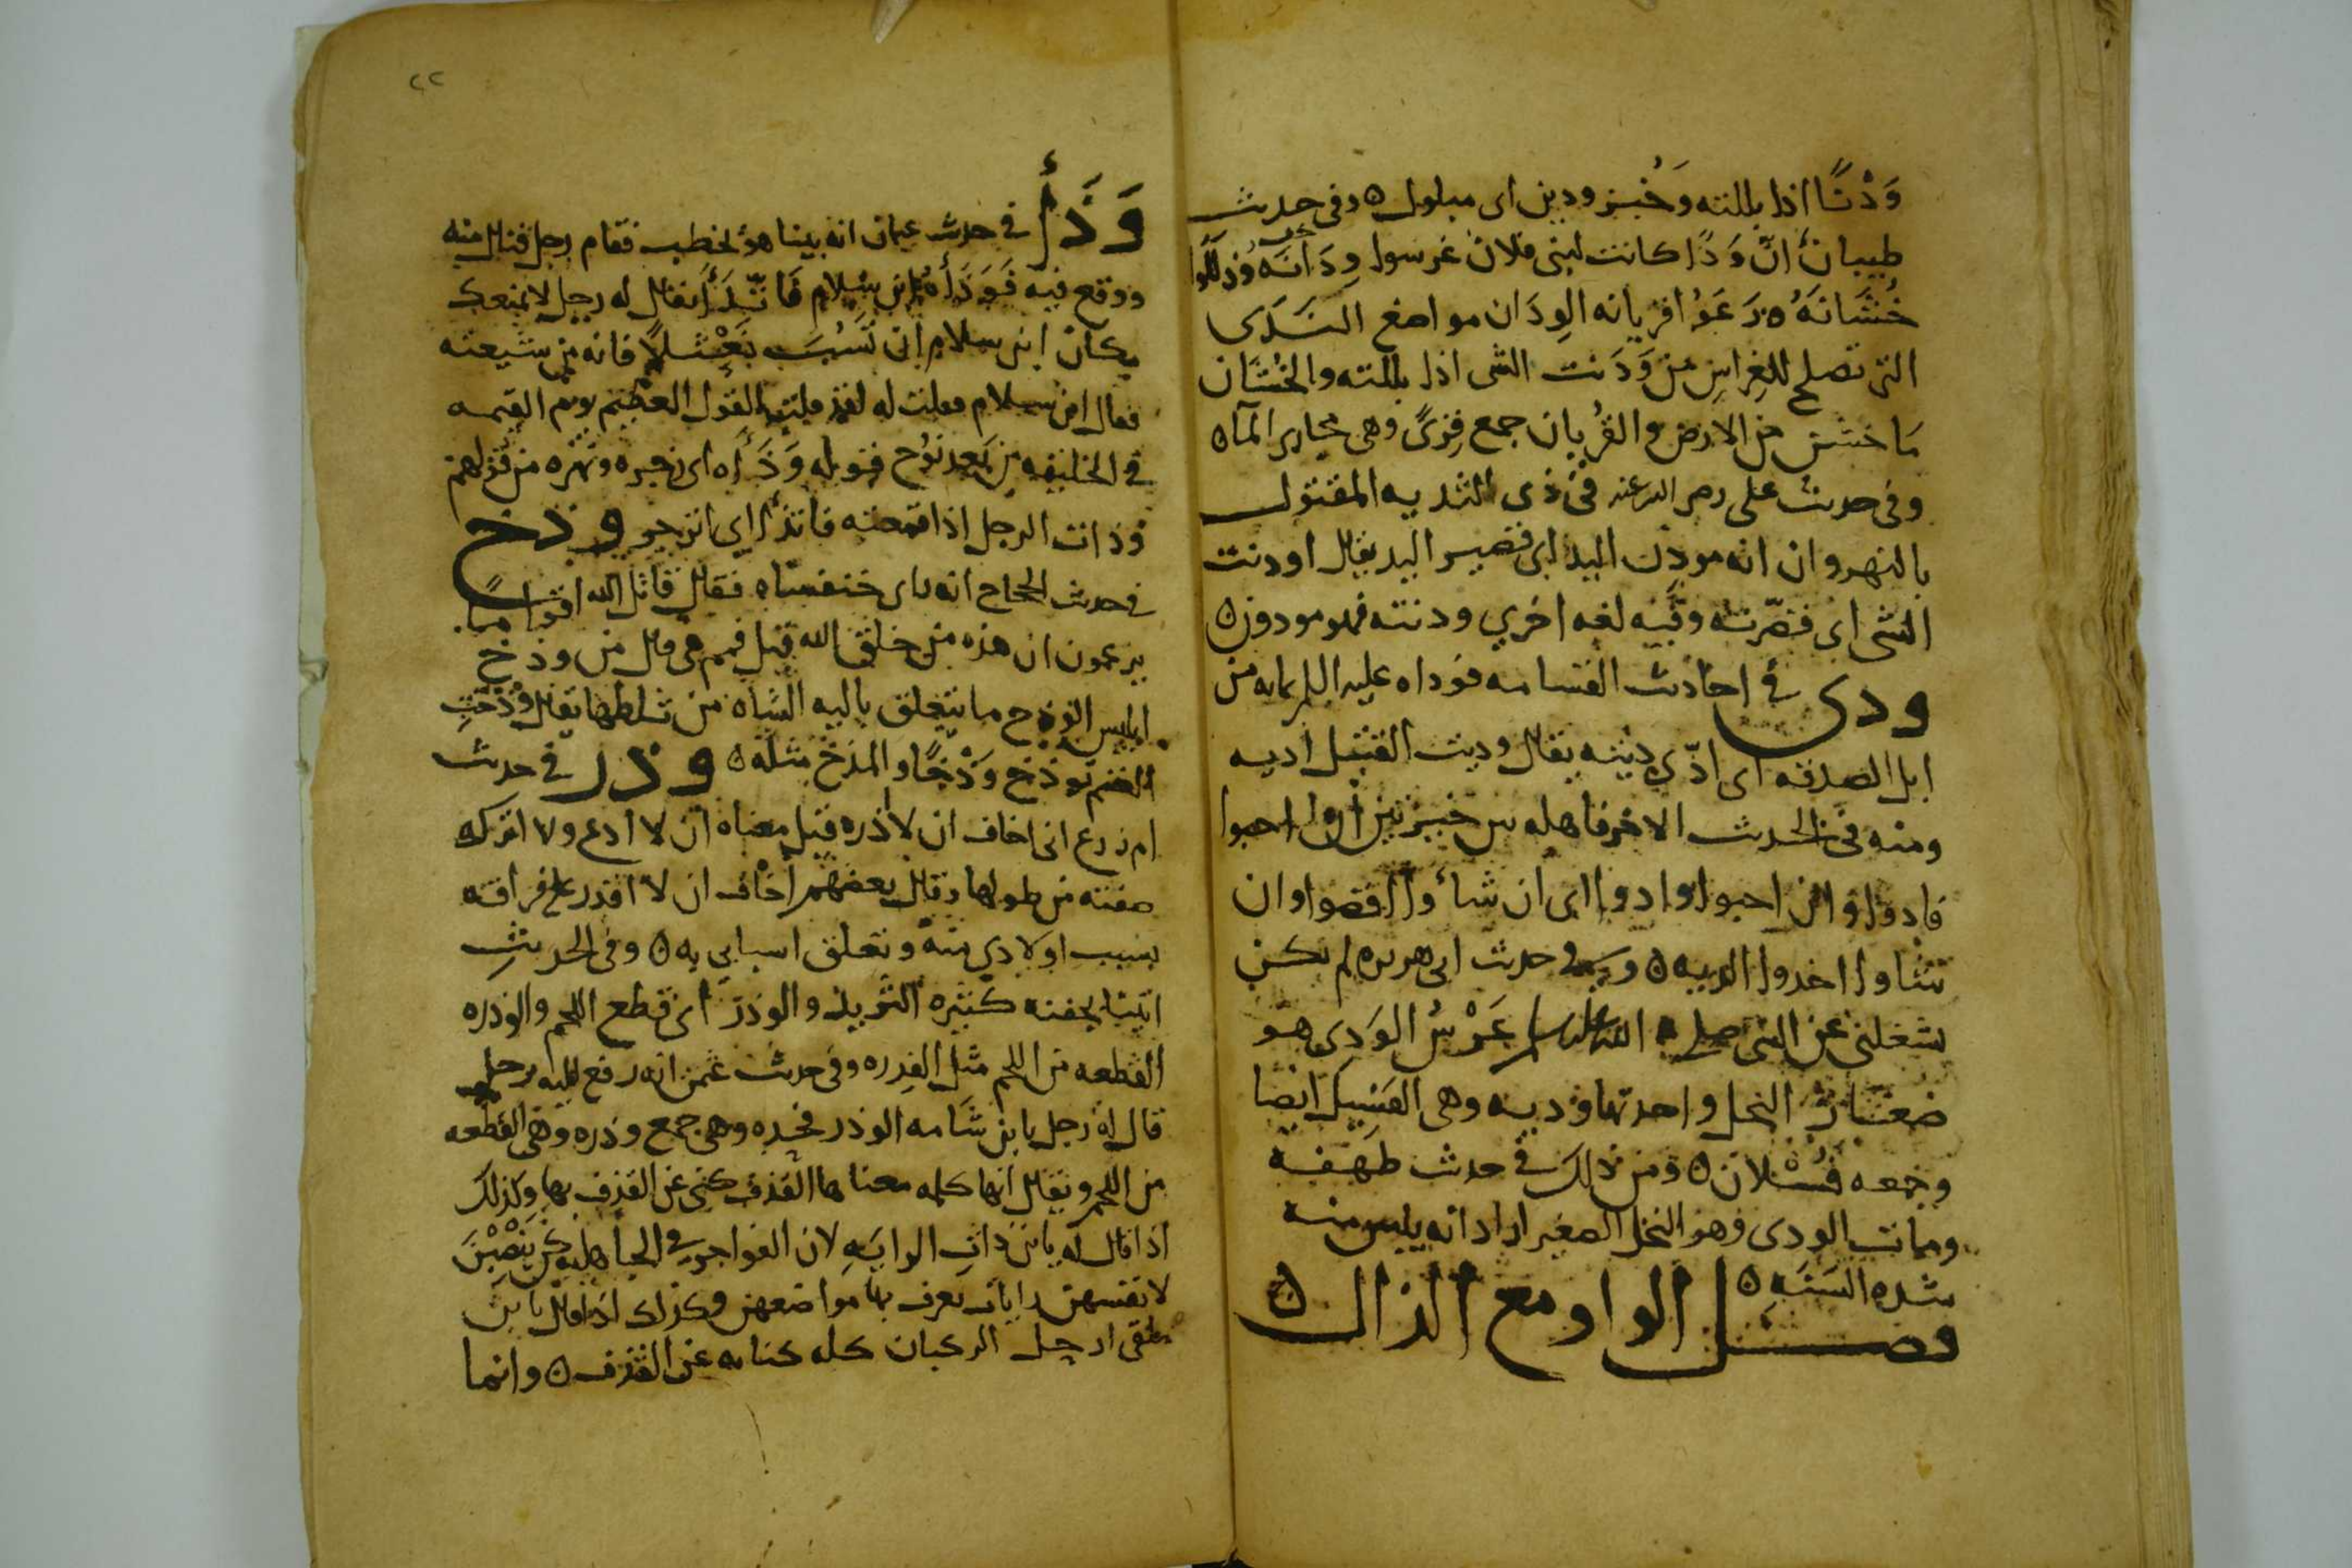 وَدْنًا اذا بللته وَخُبز ودين اى مبلول ٥ وفى حديث
ظبيان أنّ وَجًا كانت لبنى فلان غرسوا وِدَانَهُ وَذللوا
خُشَانَهُ ٥ وَرَعَوْا قريانه الوِدَان مواضع النَّدَى
التى تصلح للغِراس من وَدَنت الشى اذا بللته والخُشَّان
مَا خشن من الارض والقُريان جمع قِرىً وهى مجارى المآ ٥
وفى حديث على رضى الله عنه فى ذى الثديه المقتول
بالنهروان انه مودن اليد اى قصير اليد يقال اودنت
الشى اى قصّرته وفيه لغه اخرى ودنته فهو مودون ٥
ودى فى احاديث القسامه فوداه عليه السلم بمايه من
ابل الصدقه اى ادّى ديته يقال وديت القتيل اديه
ومنه فى الحديث الاخر فاهله بين خيرتين ان احبوا
قادوا وان احبوا وادوا اى ان شاؤا اقتصوا وان
شاوا اخذوا الديه ٥ وفى حديث ابى هريره لم يكن
يشغلنى عن النبى صلى الله عليه وسلم غَرْسُ الوَدِى هو
صغار النخل واحدتها وديه وهى الفَسِيل ايضا
وجمعه فُسْلان ٥ ومن ذلك فى حديث طهفه
ومات الودى وهو النخل الصغير اراد انه يبس من
شده السَنَه ٥
فصل الواو مع الذال ٥
٢٢
وَذَأ فى حديث عثمان انه بينا هو يخطب فقام رجل فنال منه
ووقع فيه فَوَذَأهُ ابن سلام فَاتَّذَأ فقال له رجل لا يمنعك
مكان ابن سلام ان تَسُبَ نَعْثَلاً فانه من شيعته
فقال ابن سلام فقلت له لقد قلت القول العظيم يوم القيمه
فى الخليفه من بعد نوح قوله وَذَأه اى زجره ونهره من قولهم
وذات الرجل اذا قمعته فاتذأ اى انزجر وذح
فى حديث الحجاج انه راى خنفساه فقال قاتل الله اقوامًا
يزعمون ان هذه من خلق الله قيل فمم هى قال من وذح
ابليس الوذح ما يتعلق باليه الشاه من ثلطها يقال وَذحَتِ
الغنم توذح وَذْحًا والمذح مثله ٥ وذر فى حديث
ام زرع انى اخاف ان لا اذره قيل معناه ان لا ادع ولا اترك
صفته من طولها وقال بعضهم اخاف ان لا اقدر على فراقه
بسبب اولادى منه وتعلق اسبابى به ٥ وفى الحديث
اتينا بجفنه كثيره الثريد والوذر اى قطع اللحم والوذره
القطعه من اللحم مثل الفدره وفى حديث عثمن انه رفع اليه رجل
قال له رجل يا بن شامه الوذر فحده وهى جمع وذره وهى القطعه
من اللحم ويقال انها كلمه معناها القذف كنى عن القذف بها وكذلك
اذا قال له يا بن ذات الرايهِ لان الفواجر فى الجاهليه كن ينصِبْنَ
لانفسهن رايات يعرف بها مواضعهن وكذلك اذا قال يا بن
ملقى ارحل الركبان كله كنايه عن القذف ٥ وانما